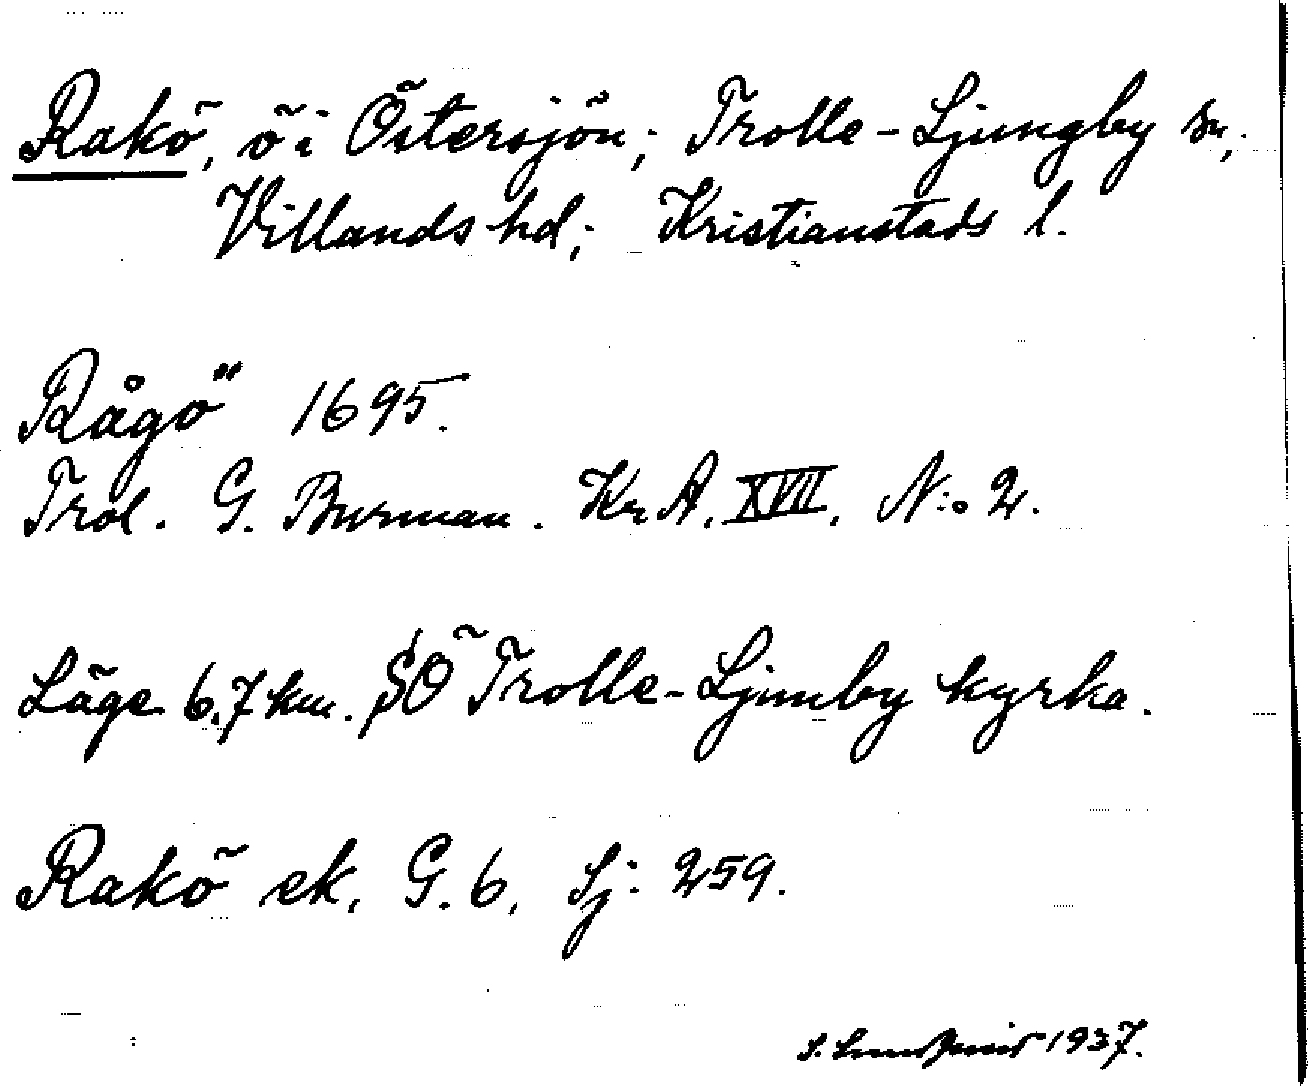 Rakö, ö i Östersjön; Trolle-Ljungby sn,
Villands hd; Kristianstads l.
Rågö 1695.
Trol. G. Burman. Kr A. XVII, N:o 2.
Läge 6,7 km. SÖ Trolle-Ljunby kyrka.
Rakö ek. G. 6, Sj: 259.
S. 1937.